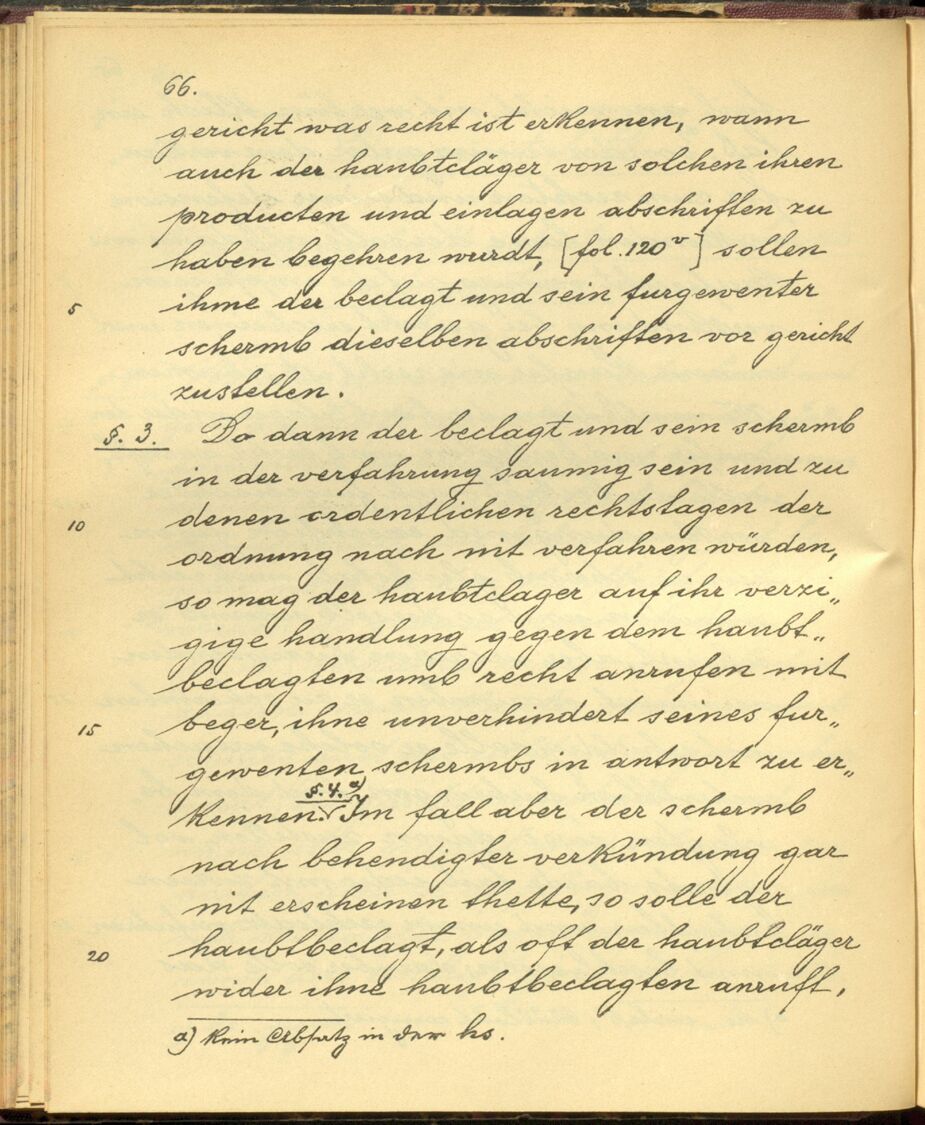 66.
gericht was recht ist erkennen, wann
auch der haubtcläger von solchen ihren
producten und einlagen abschriften zu
haben begehren wurdt, [fol. 120v] sollen
5 ihme der beclagt und sein furgewenter
schermb dieselben abschriften vor gericht
zustellen.
§. 3. Do dann der beclagt und sein schermb
in der verfahrung saumig sein und zu
10 denen ordentlichen rechtstagen der
ordnung nach nit verfahren würden,
so mag der haubtclager auf ihr verzi„
gige handlung gegen dem haubt„
beclagten umb recht anrufen mit
15 beger, ihne unverhindert seines fur„
gewenten schermbs in antwort zu er„
kennen. §. 4. a) Im fall aber der schermb
nach behendigter verkündung gar
nit erscheinen thette, so solle der
20 haubtbeclagt, als oft der haubtcläger
wider ihne haubtbeclagten anruft,
a) Kein Absatz in der hs.